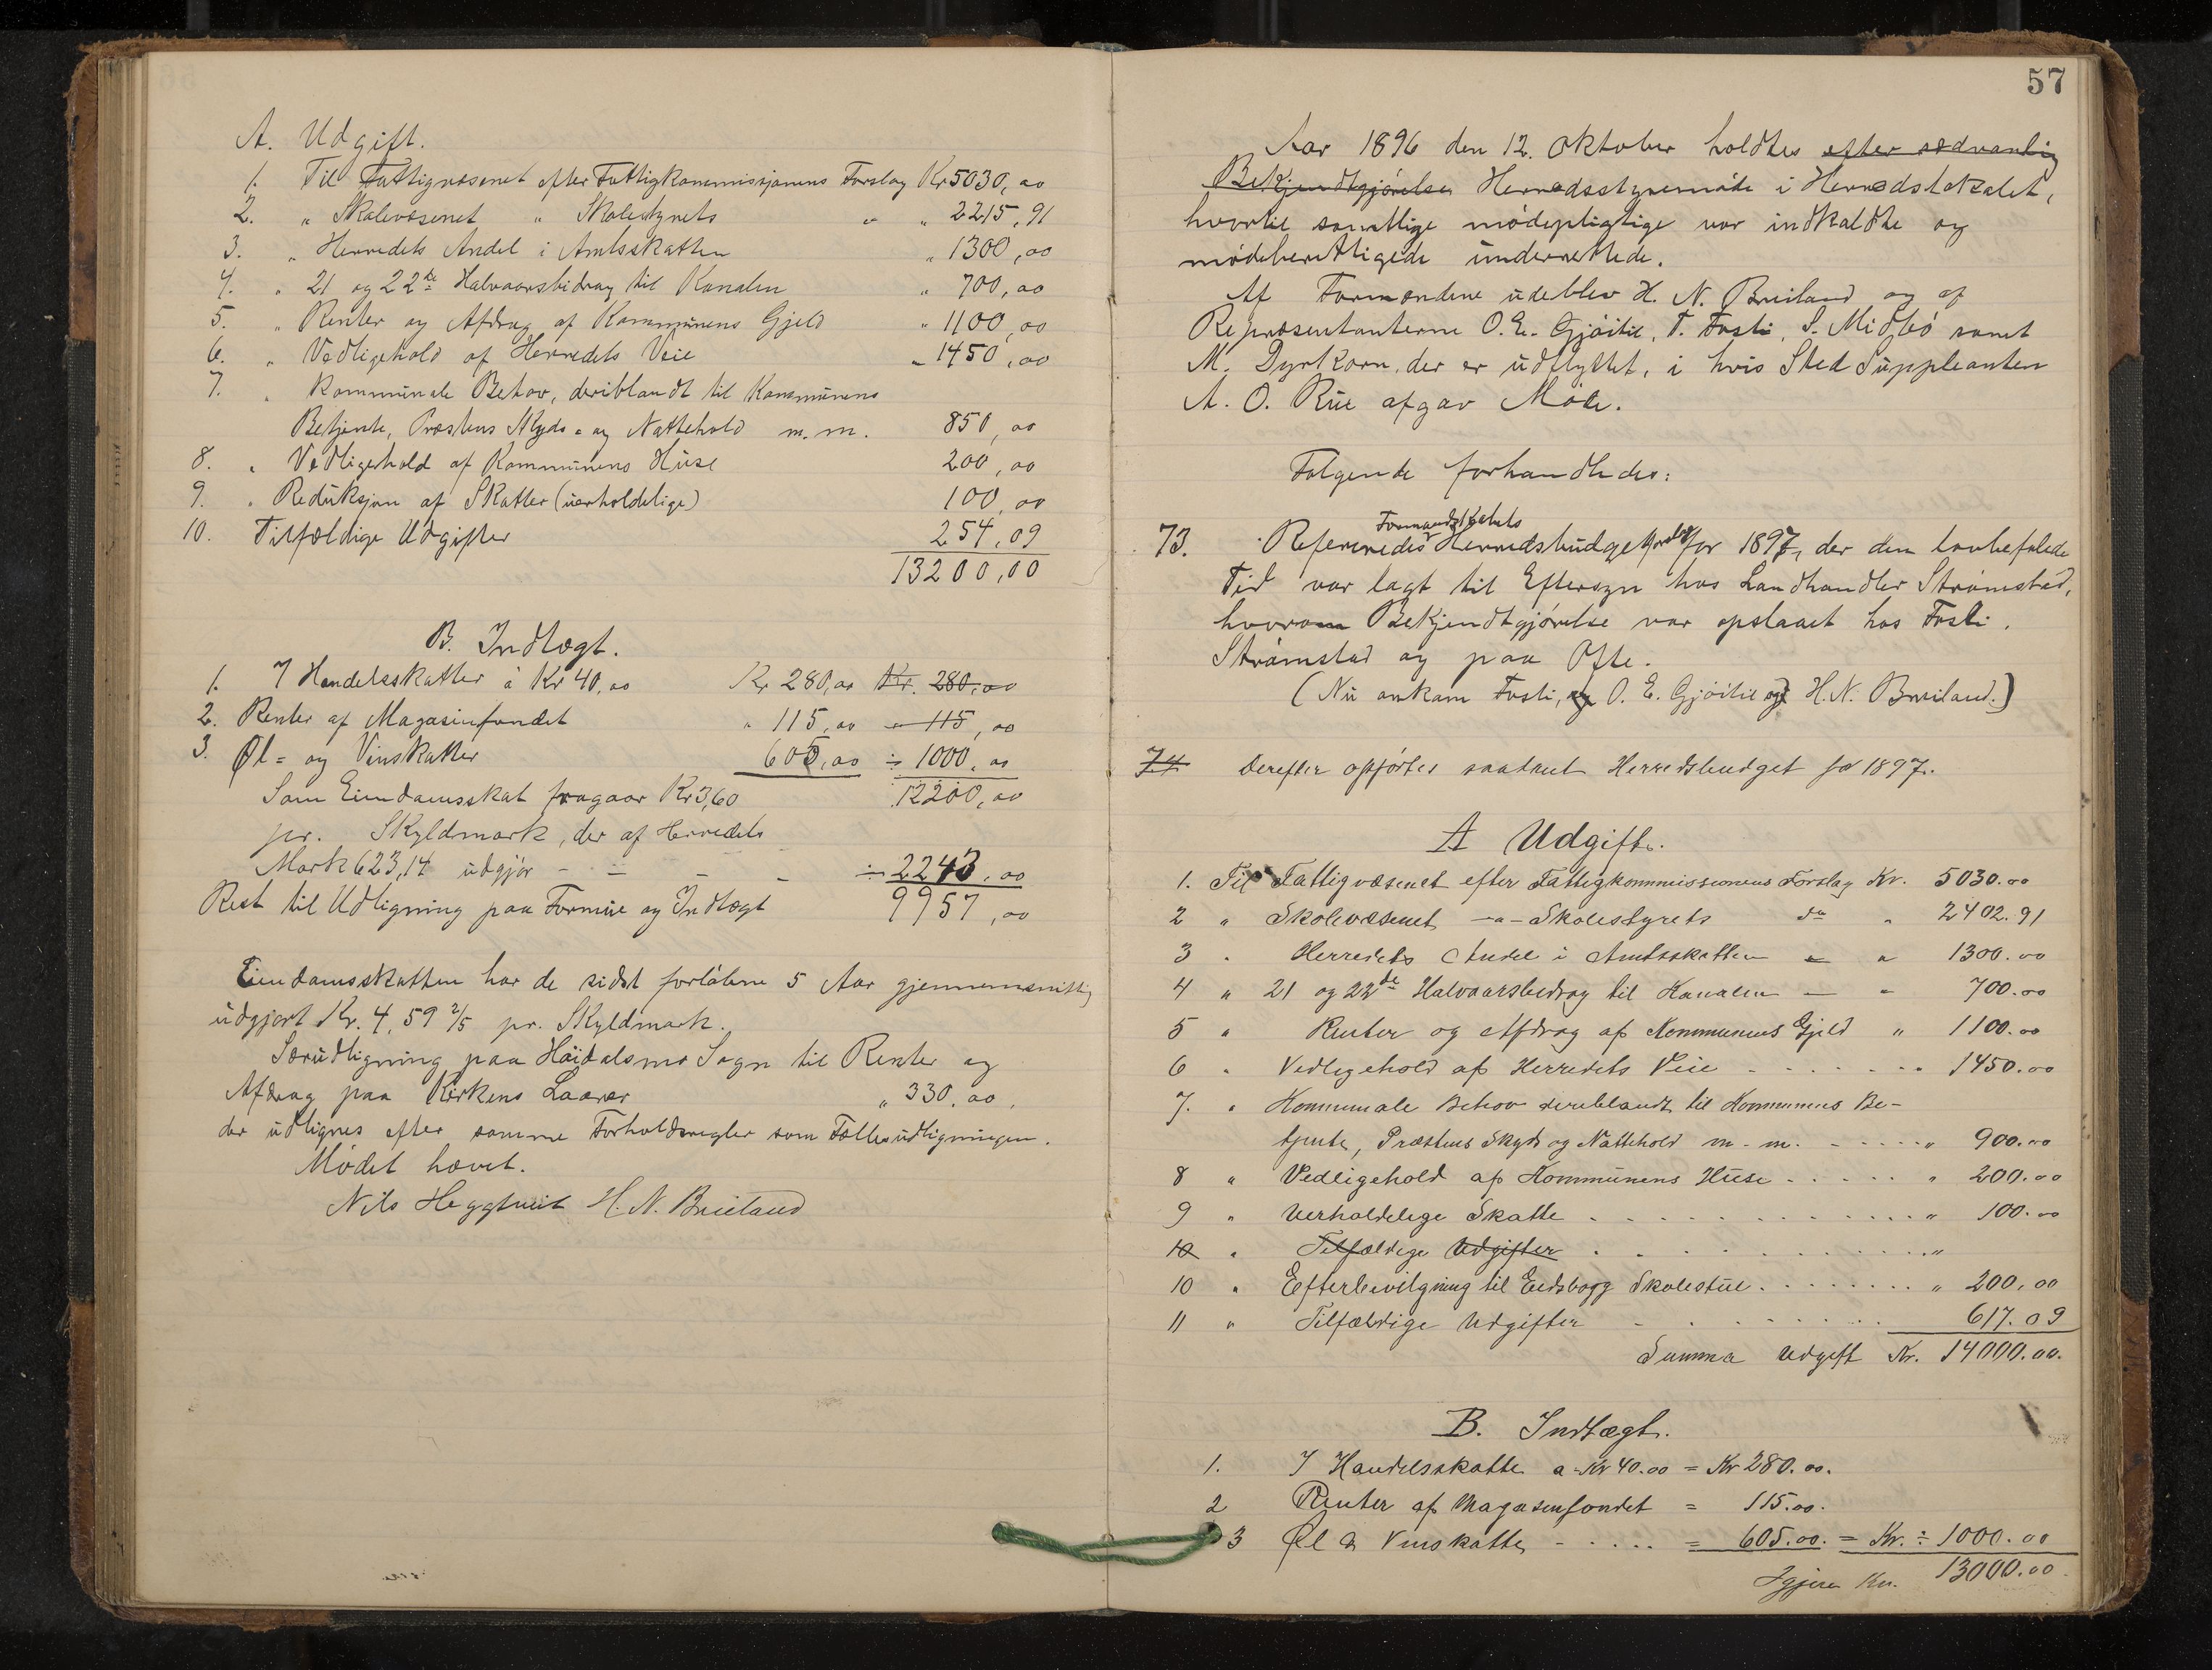 A. Udgift.
1. Til Fattigvæsenet efter Fattigkommissjonens Forslag Kr 5030,00
2. " Skolevæsenet " Skolestyrets " " 2215,91
3. " Herredets Andel i Amtsskatten " 1300,00
4. " 21 og 22de Halvaarsbidrag til Kanalen " 700,00
5. " Renter og Afdrag af Kommunens Gjeld " 1100,00
6. " Vedligehold af Herredets Veie " 1450,00
7. " Kommunale Behov, deriblandt til Kommunens
Betjente, Præstens Skyds- og Nattehold m.m. 850,00
8. " Vedligehold af Kommunens Huse 200,00
9. " Reduksjon af Skatter (uerholdelige) 100,00
10. Tilfældige Udgifter 254,09
13200,00
B. Indtægt.
1. 7 Handelsskatter à Kr 40,00 Kr 280,00 Kr. 280,00
2. Renter af Magasinfondet " 115,00 " 115,00
3. Øl- og Vinskatter 605,00 ÷ 1000,00
Som Eiendomsskat fragaar Kr 3,60 12200,00
pr. Skyldmark, der af Herredets
Mark 623,14 udgjør - - - - ÷ 2243,00
Rest til Udligning paa Formue og Indtægt 9957,00
Eiendomsskatten har de sidst forløbne 5 Aar gjennemsnittlig
udgjort Kr. 4,59 2/5 pr. Skyldmark.
Særudligning paa Høidalsmo Sogn til Renter og
Afdrag paa Kirkens Laaner " 330,00,
der udlignes efter samme Forholdsregler som Fællesudligningen.
Mødet hævet.
Nils Heggtveit H. N. Breiland
57
Aar 1896 den 12. Oktober holdtes efter sædvanlig
Bekjendtgjørelse Herredsstyremøde i Herredslokalet,
hvortil samtlige mødepligtige var indkaldte og
mødeberettigede underrettede.
Af Formændene udeblev H. N. Breiland og af
Repræsentanterne O. E. Gjøitil, T. Fosti, S. Midbø samt
M. Dyrkorn, der er udflyttet, i hvis Sted Suppleanten
A. O. Rue afgav Møde.
Følgende forhandledes:
Formandskabets
73. Refereredes Herredsbudgetforslag for 1897, der den lovbefalede
Tid var lagt til Eftersyn hos Landhandler Strømstad,
hvorom Bekjendtgjørelse var opslaaet hos Fosti,
Strømstad og paa Ofte.
(Nu ankom Fosti, og O. E. Gjøitil og H. N. Breiland.)
74 Derefter opførtes saadant Herredsbudget for 1897.
A Udgift.
1. Til Fattigvæsenet efter Fattigkommissionens Forslag Kr. 5030.00
2 " Skolevæsenet -"- Skolestyrets do " 2402.91
3 " Herredets Andel i Amtsskatten - " 1300.00
4 " 21 og 22de Halvaarsbidrag til Kanalen - " 700.00
5 " Renter og Afdrag af Kommunens Gjeld " 1100.00
6 " Vedligehold af Herredets Veie - - - - - - - 1450.00
7. " Kommunale Behov deriblandt til Kommunens Be-
tjente, Præstens Skyds og Nattehold m. m. - - - - - " 900.00
8 " Vedligehold af Kommunens Huse - - - - - " 200.00
9 " Uerholdelige Skatte . . . . . . . . . . . . . " 100.00
10 " Tilfældige Udgifter . . . . . . . . . . . . . "
10 " Efterbevilgning til Eidsborg Skolestue . . . . . . . . " 200,00
11 " Tilfældige Udgifter - . . . . . . . . 617.09
Summa Udgift Kr. 14000.00.
B. Indtægt.
1. 7 Handelsskatte a Kr 40.00 = Kr 280.00.
2 Renter af Magasinfondet = 115.00.
3 Øl & Vinskatte - - . . . . = 605.00. = Kr. ÷ 1000.00
Igjen Kr. 13000.00